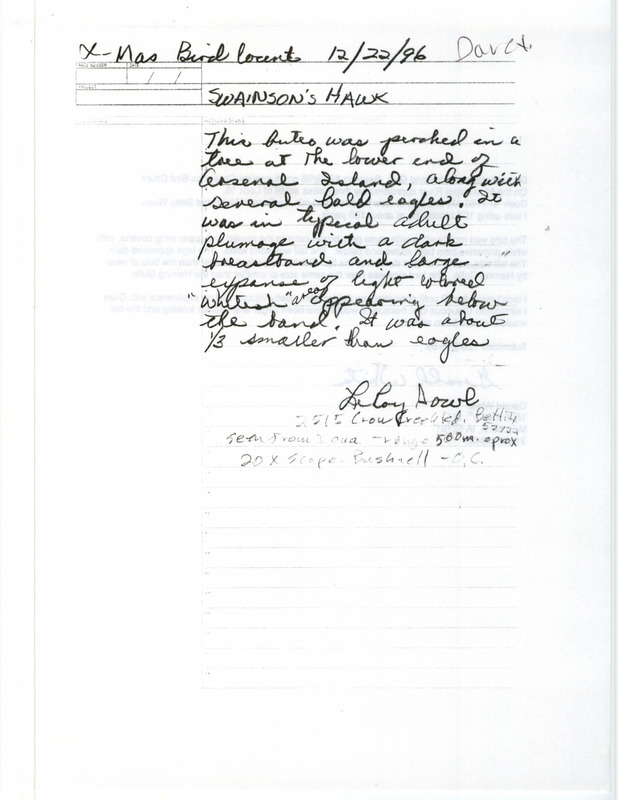 X-Mas Bird Counts 12/22/96
SWAINSON'S HAWK
This buteo was perched in a
tree at The lower end of
Arsenal Island, along with
several bald eagles. It
was in typical adult
plumage with a dark
breastband and large
expanse of light colored
"whitish" area appearing below
the band. It was about
1/3 smaller than eagles
LeRoy Dowl
2515 Crow Creek Rd. Bett
seen from Iowa - range 500m. aprox
20 X Scope. Bushnell - O.C.